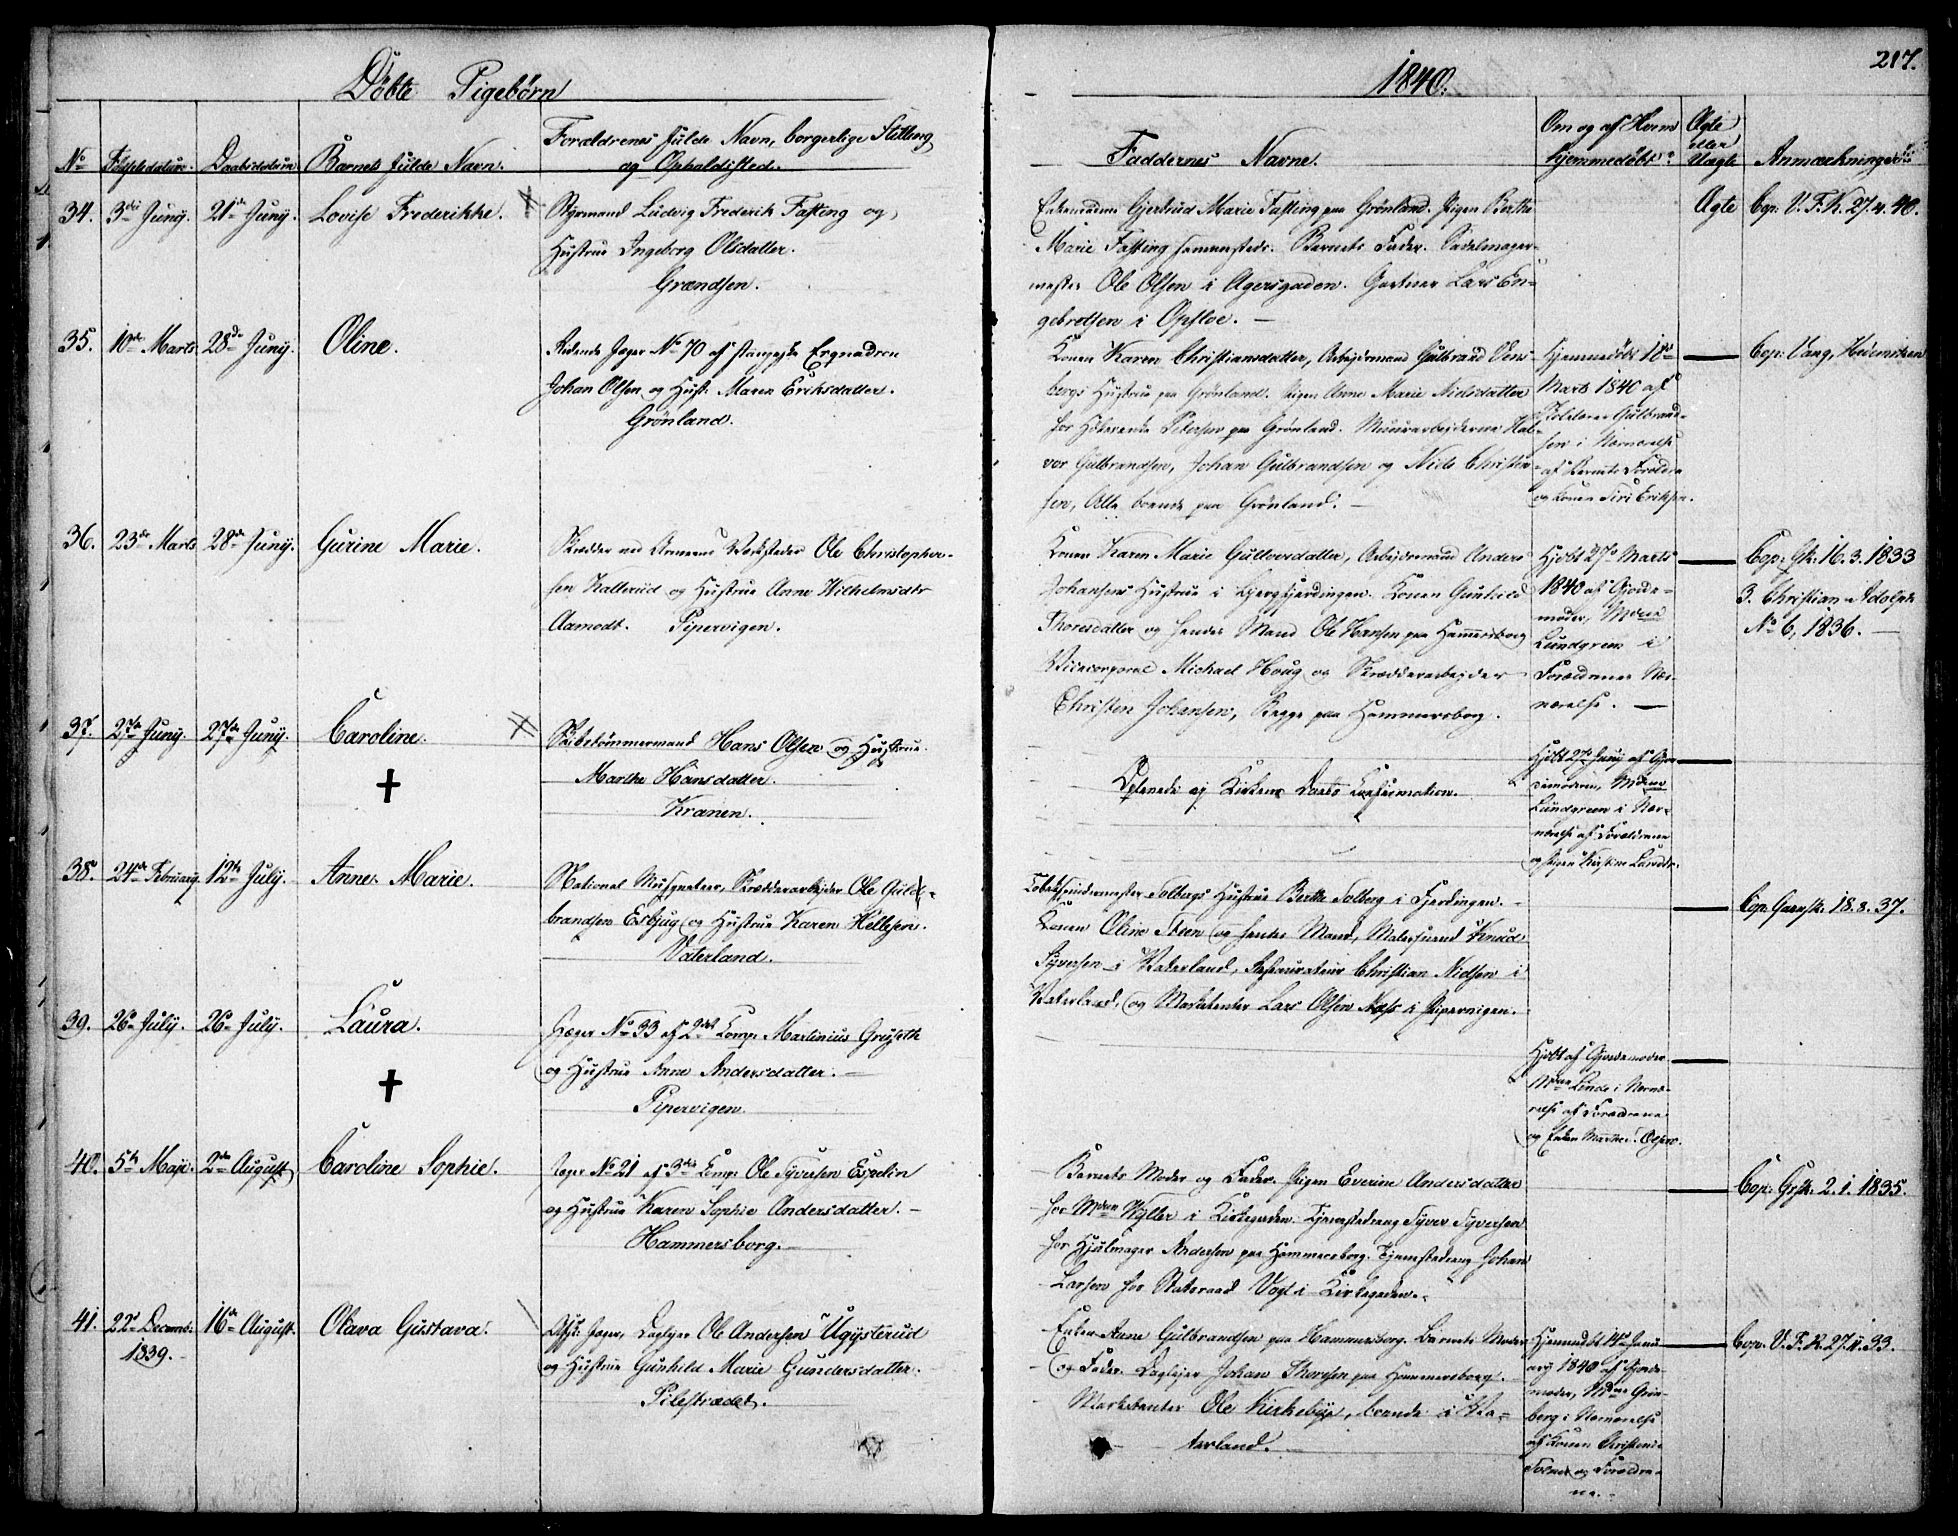 217.
Döbte Pigebörn
1840.
No
Födselsdatum.
Daabsdatum
Barnets fulde Navn.
Forældrenes fulde Navn, borgerlige Stilling
og Opholdssted.
Faddernes Navne.
Om og af Hvem
hjemmedöbt?
Ægte
eller
Uægte
Anmærkninger
34. 3die Juny. 21de Juny. Lovise Frederikke.
Styrmand Ludvig Frederik Fasting og
Hustrue Ingeborg Olsdatter.
Grændsen.
Enkemadme Gjertrud Marie Fasting paa Grönland. Pigen Berthe
Marie Fasting sammesteds. Barnets Fader. Sadelmager-
mester Ole Olsen i Agersgaden. Gartner Lars En-
gebretsen i Opsloe. —
Ægte
Cop. V. F. K. 27. 4. 40.
35. 10de Marts 28de Juny. Oline.
Ridende Jæger No 70 af Esqvadron
Johan Olsen og Hust. Maren Eriksdatter.
Grönland.
Konen Karen Christiansdatter, Arbeidsmand Gulbrand
bergs Hustrue paa Grönland. Pigen Anne Marie Nielsdatter
for Petersen paa Grönland. Muurarbeiderne Hal-
vor Gulbrandsen, Johan Gulbrandsen og Niels Christen-
sen, Alle boende paa Grönland. —
Hjemmedöbt 18de
Marts 1840 af
Gulbrand-
sen i Nærværelse
af Barnets Forældre
og Konen Siri Eriksen.
Cop: Vang, Hedemarken
36. 23de Marts 28de Juny. Gurine Marie.
Skrædder ved Armeens Værksteder Ole Christopher-
sen Kallerud og Hustrue Anne Wilhelmsdtr
Aamodt. Pipervigen.
Konen Karen Marie Gulbrandsdatter, Arbeidsmand Anders
Johansens Hustrue i Bjergfjerdingen. Konen Gunhild
Thoresdatter og hendes Mand Ole Hansen paa Hammersborg
Vicecorporal Michael Houg og Skrædderarbeider
Christen Johansen, Begge paa Hammersborg.
Hjdbt 27de Marts
1840 af Gjorde-
moder, Mdme
Lundgreen i
Forældrenes Nær-
værelse. —
Cop: Gk. 16. 3. 1833
3. Christian Adolph
No 6, 1836. —
37. 27de Juny. 27de Juny. Caroline.
Skibstömmermand Hans Olsen og Hustrue
Marthe Hansdatter.
Kranen.
Döde ej Kirkens Daabs Confirmation.
Hjdbt 27de Juny af Gjor-
demoderen, Mdme
Lundgreen i Nær-
værelse af Forældrene
og Pigen Kirstine Larsdtr.
38. 24de February. 12te July. Anne Marie.
National Musqueteer, Skrædderarbejder Ole Guld-
brandsen Esbjug og Hustrue Karen Hellesen.
Vaterland.
Tobaksspindermester Solbergs Hustrue Berthe Solberg i Fjerdingen.
Konen Oline Steen og hendes Mand, Malersvend Knud
Syversen i Vaterland, Restaurateur Christian Nielsen i
Vaterland, og Marketenter Lars Olsen Næss i Pipervigen.
Cop: Garnsk. 18. 8. 37.
39. 26de July. 26de July. Laura.
Jæger No 33 af 2det Comp. Martinius Gruseth
og Hustrue Anne Andersdatter. —
Pipervigen
Hjdbt af Gjordemoder
Mdme Linde i Nærvæ-
relse af Forældrene
og Enken Marthe Olsen.
40. 5te Maji. 2den August Caroline Sophie.
Jæger No 21 af 3die Comp. Ole Syversen Espelin
og Hustrue Karen Sophie Andersdatter. —
Hammersborg. —
Barnets Moder og Fader. Pigen Everine Andersdatter
hos Mdme Wyller i Kirkegaden. Tjenestedreng Syver Syversen
hos Hjulmager Andersen paa Hammersborg. Tjenestedreng Johan
Larsen hos Statsraad Vogt i Kirkegaden.
Cop. Gsk. 2. 1. 1835.
41. 22de Decemb: 1839. 16de August. Olava Gustava.
Afsk: Jæger, Daglejer Ole Andersen Ugysterud
og Hustrue Gunhild Marie Gundersdatter.
Pilestrædet.
Enken Anne Gulbrandsen paa Hammersborg. Barnets Moder
og Fader. Daglejer Johan Thoresen paa Hammersborg.
Marketenter Ole Kirkebye, boende i Va-
terland.
Hjemmedbt 14de Janu-
ary 1840 af Gjorde-
moder, Mdme Grön-
berg i Nærværelse
af Konen Christine
og Forældre-
ne. —
Cop. V. F. K. 27. 11. 33.